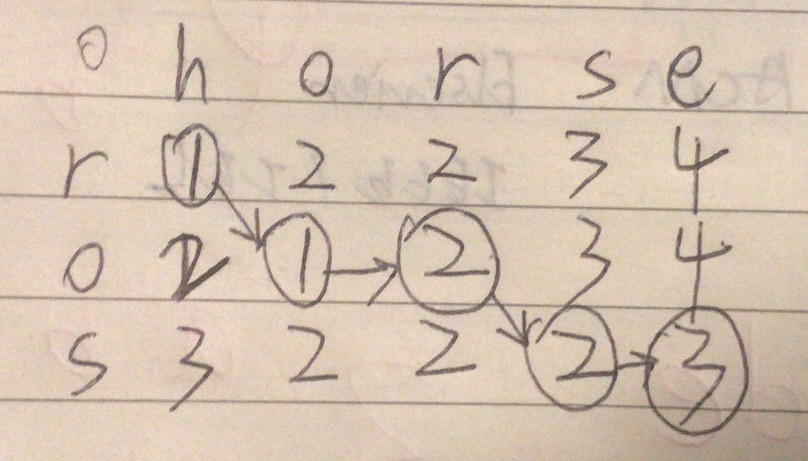 o h o r s e
r 1 2 2 3 4
o 2 1 2 3 4
s 3 2 2 2 3